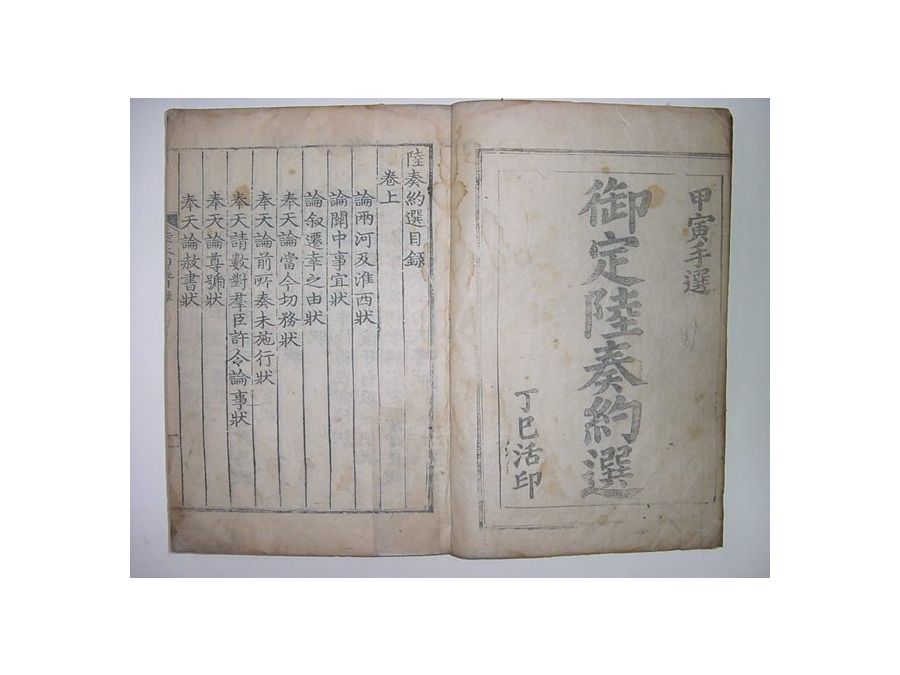 甲寅手選
御定陸奏約選
丁巳活印
陸奏約選目錄
卷上
論兩河及淮西狀
論關中事宜狀
論敘遷幸之由狀
奉天論當今切務狀
奉天論前所奏未施行狀
奉天請數對羣臣許令論事狀
奉天論尊號狀
奉天論赦書狀